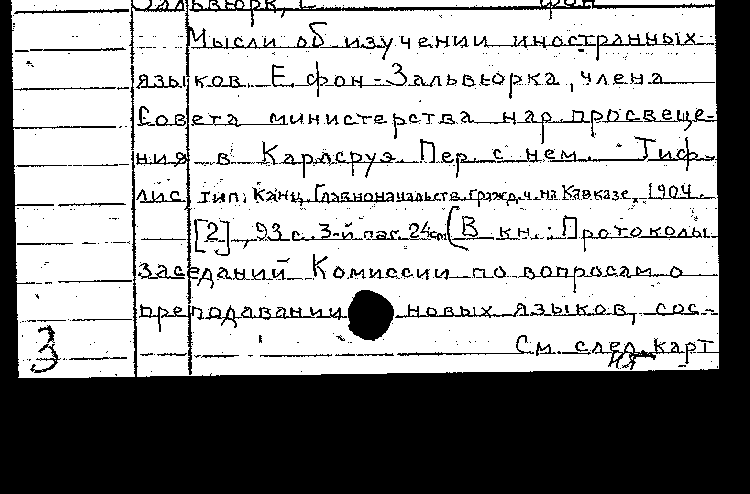 Зальвюрк, Е фон
Мысли об изучении иностранных
языков Е. фон-Зальвюрка, члена
Совета министерства нар. просвеще-
ния в Карлсруэ. Пер. с нем. Тиф-
лис, тип. Канц. Главноначальств. гражд. ч. на Кавказе, 1904.
[2], 93 с. 3-й паг. 24см (В кн.: Протоколы
заседаний Комиссии по вопросам о
преподавании новых языков, сос-
См. след. карт
3